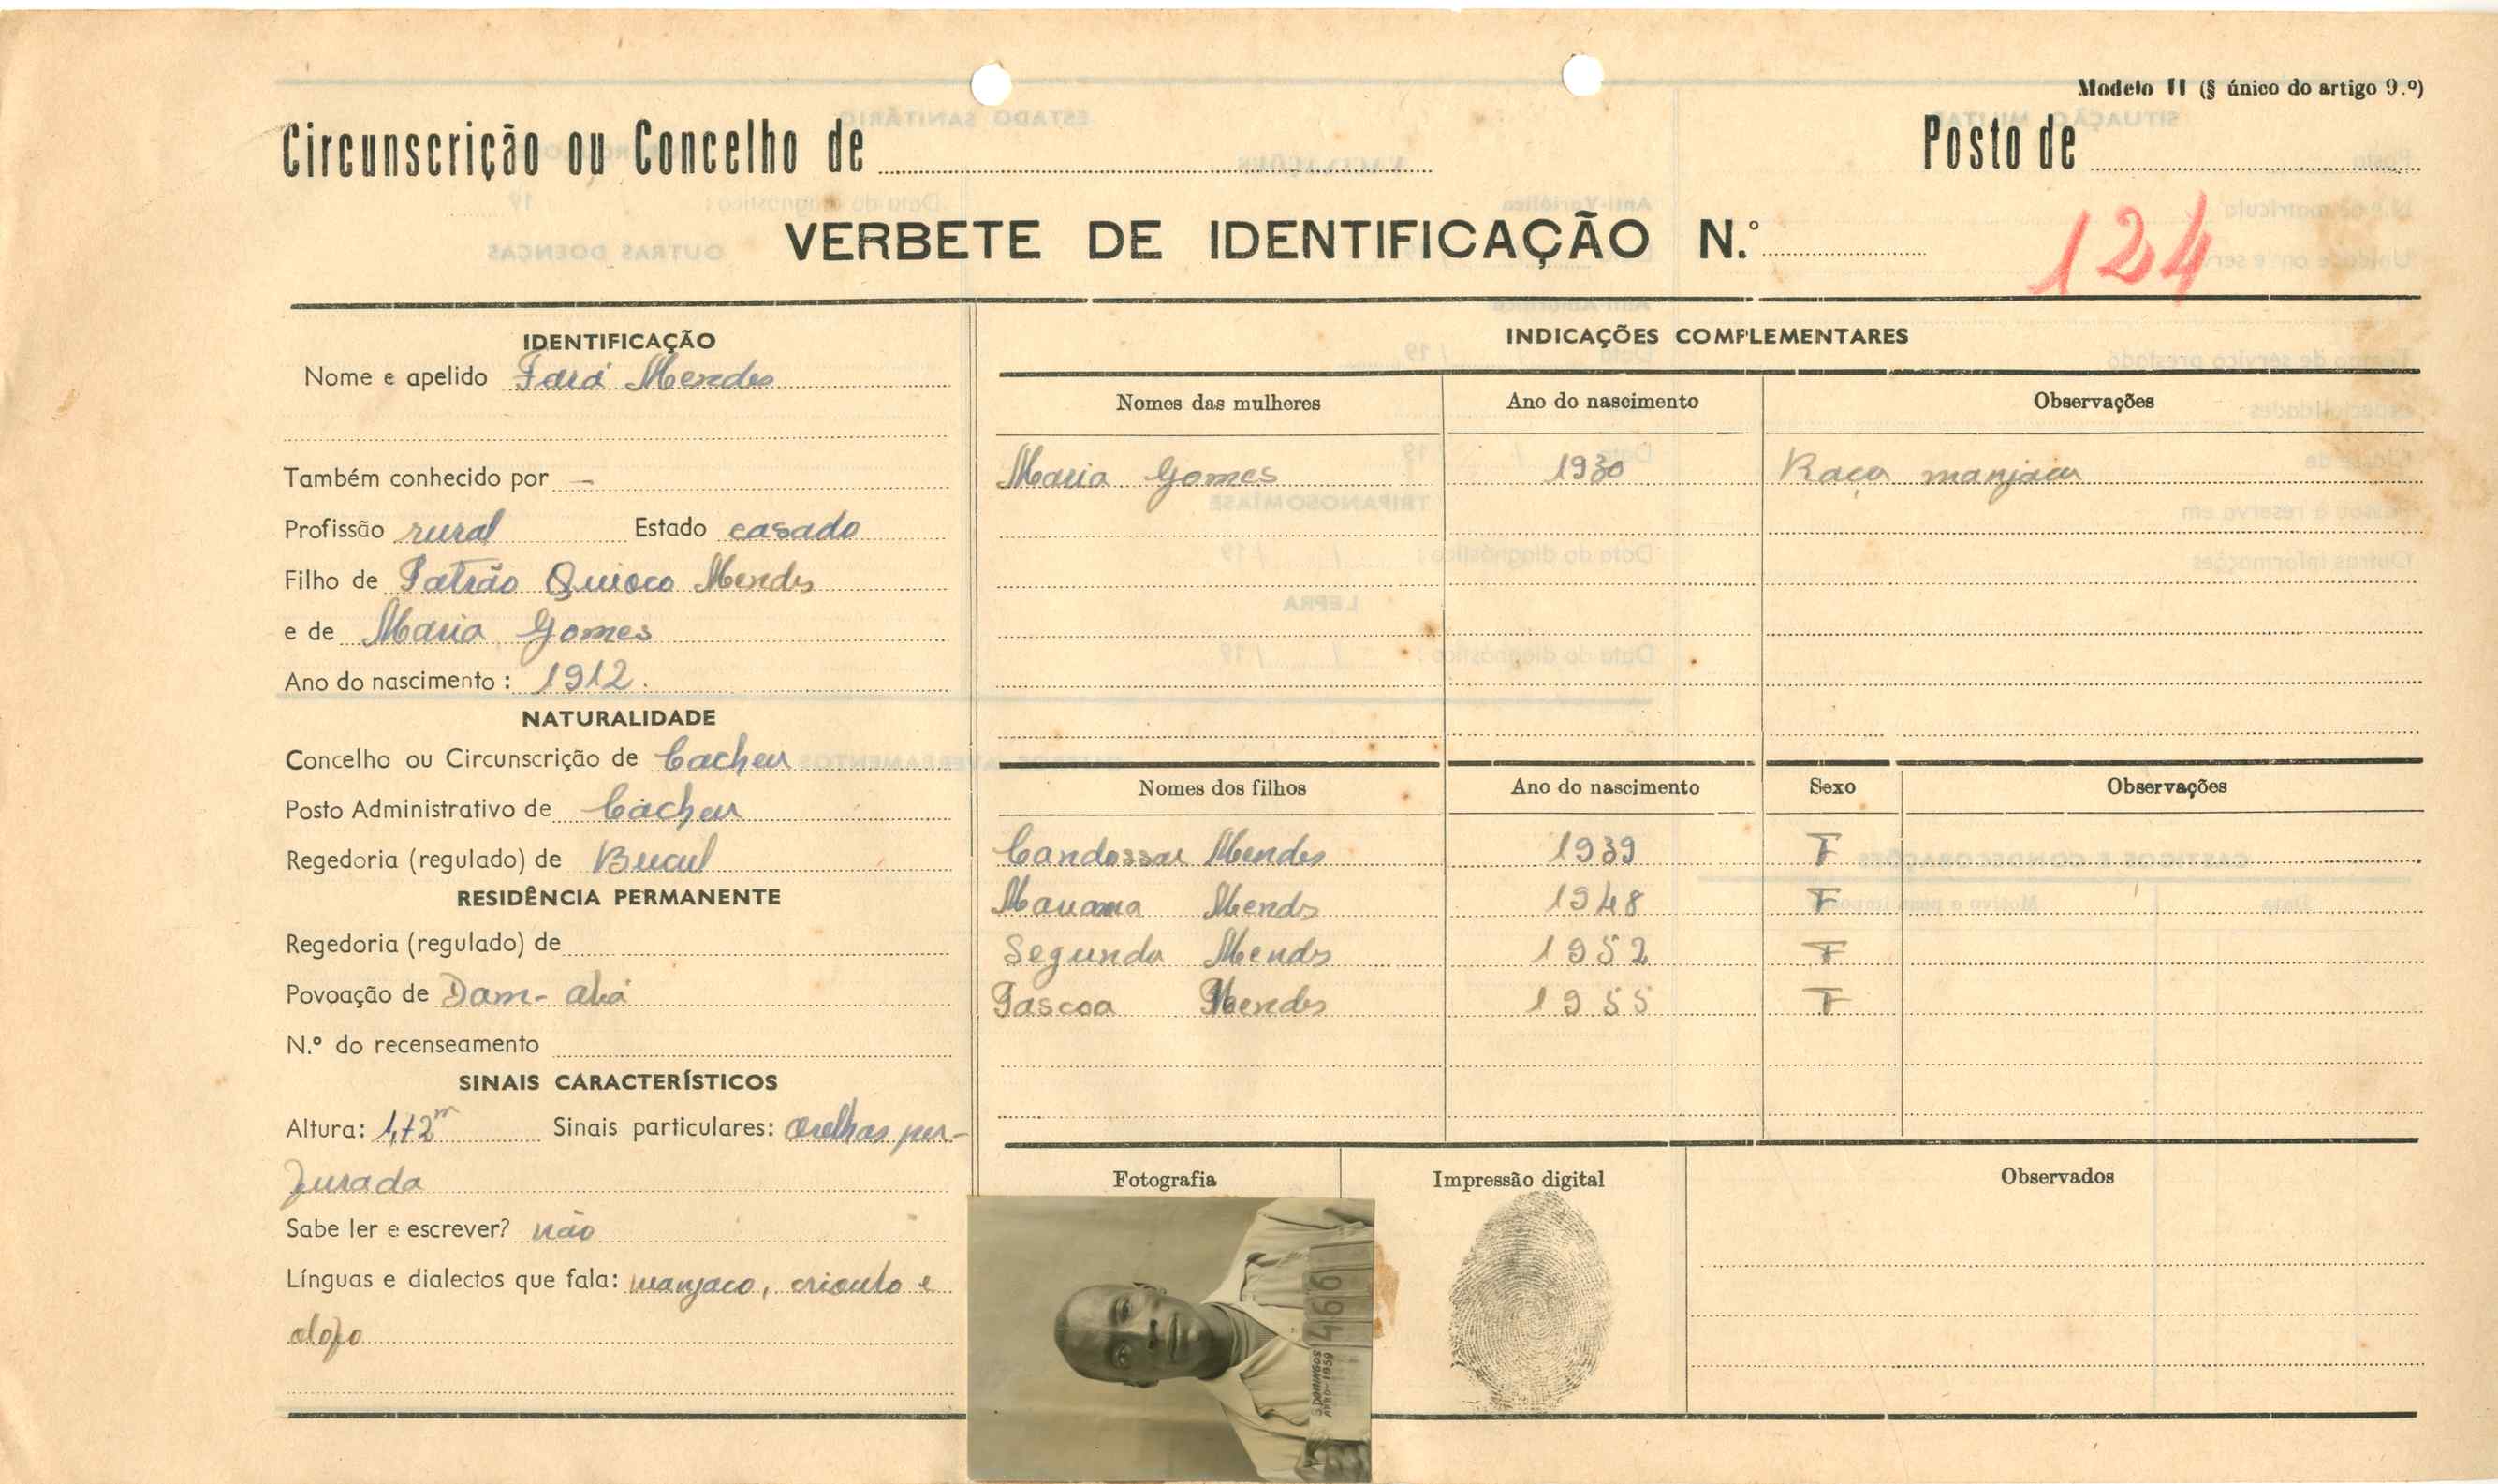 Modelo II (§ único do artigo 9.º)
Circunscrição ou Concelho de Posto de
VERBETE DE IDENTIFICAÇÃO N.º 124
IDENTIFICAÇÃO
Nome e apelido Fará Mendes
Também conhecido por —
Profissão rural Estado casado
Filho de Patrão Quioco Mendes
e de Maria Gomes
Ano do nascimento: 1912.
NATURALIDADE
Concelho ou Circunscrição de Cacheu
Posto Administrativo de Cacheu
Regedoria (regulado) de Bucul
RESIDÊNCIA PERMANENTE
Regedoria (regulado) de
Povoação de Dam-
N.º do recenseamento
SINAIS CARACTERÍSTICOS
Altura: 1,72m Sinais particulares: orelhas per-
furada
Sabe ler e escrever? não
Línguas e dialectos que fala: manjaco, crioulo e
olofo
INDICAÇÕES COMPLEMENTARES
Nomes das mulheres Ano do nascimento Observações
Maria Gomes 1930 Raça manjaca
Nomes dos filhos Ano do nascimento Sexo Observações
Candossar Mendes 1939 F
Mendes 1948 F
Segunda Mendes 1952 F
Pascoa Mendes 1955 F
Fotografia Impressão digital Observados
466
S.DOMINGOS
ANO-1959